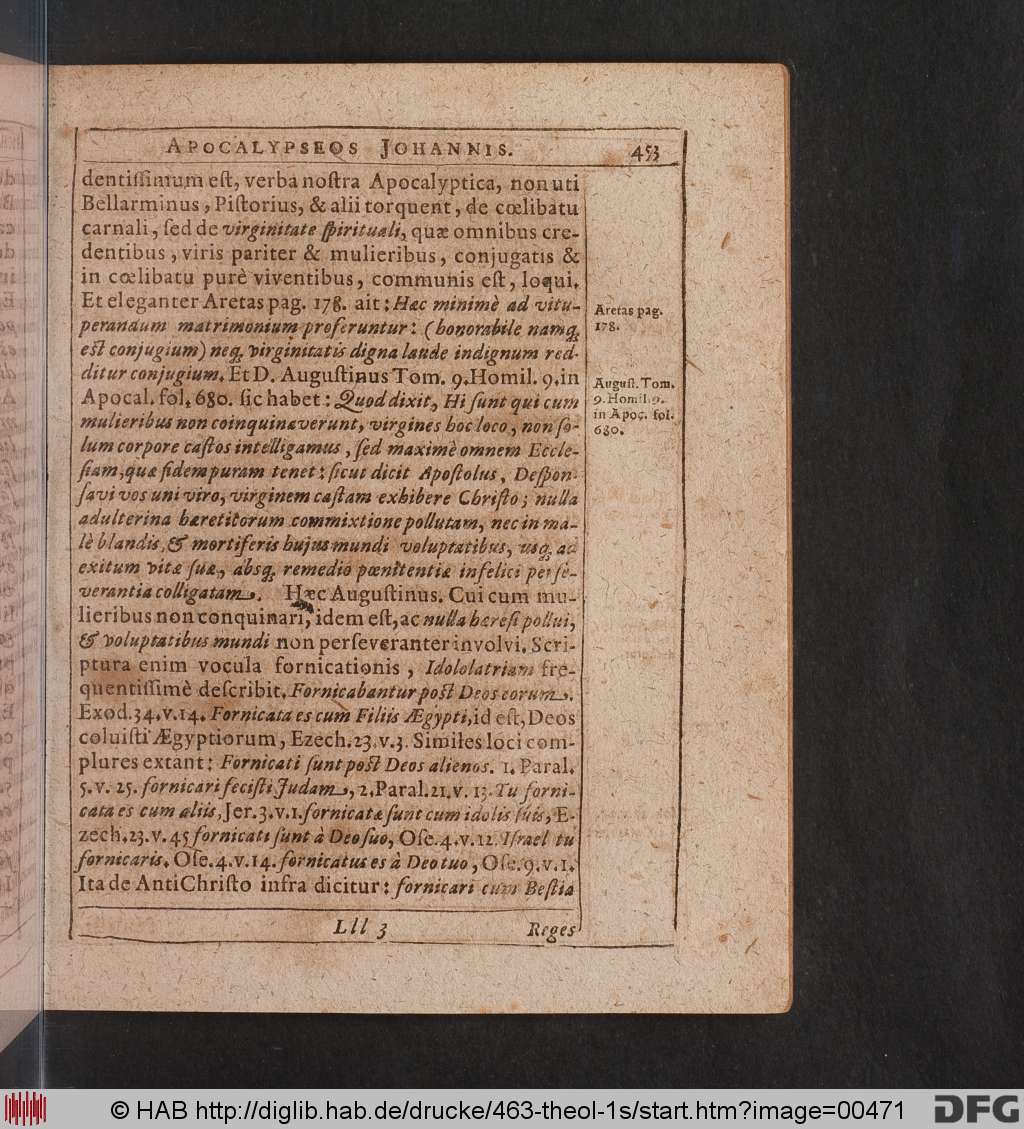 APOCALYPSEOS JOHANNIS. 453
dentiſſimum eſt, verba noſtra Apocalyptica, non uti
Bellarminus, Piſtorius, & alii torquent, de cœlibatu
carnali, ſed de virginitate ſpirituali, quæ omnibus cre-
dentibus, viris pariter & mulieribus, conjugatis &
in cœlibatu purè viventibus, communis eſt, loqui.
Et eleganter Aretas pag. 178. ait: Hæc minimè ad vitu-
perandum matrimonium proferuntur: (honorabile namq́;
eſt conjugium) neq́; virginitatis digna laude indignum red-
ditur conjugium. Et D. Auguſtinus Tom. 9. Homil. 9. in
Apocal. fol. 680. ſic habet: Quod dixit, Hi ſunt qui cum
mulieribus non coinquinaverunt, virgines hoc loco, non ſo-
lum corpore caſtos intelligamus, ſed maximè omnem Eccle-
ſiam, quæ fidem puram tenet: ſicut dicit Apoſtolus, Deſpon-
ſavi vos uni viro, virginem caſtam exhibere Chriſto; nulla
adulterina hæretitorum commixtione pollutam, nec in ma-
lè blandis, & mortiferis hujus mundi voluptatibus, usq́; ad
exitum vitæ ſuæ, absq́; remedio pœnitentiæ infelici perſe-
verantia colligatam. Hæc Auguſtinus. Cui cum mu-
lieribus non conquinari, idem eſt, ac nulla hæreſi pollui,
& voluptatibus mundi non perſeveranter involvi. Scri-
ptura enim vocula fornicationis, Idololatriam fre-
quentiſſimè deſcribit. Fornicabantur poſt Deos eorum.
Exod. 34. v. 14. Fornicata es cum Filiis Ægypti, id eſt, Deos
coluiſti Ægyptiorum, Ezech. 23. v. 3. Similes loci com-
plures extant: Fornicati ſunt poſt Deos alienos. 1. Paral.
5. v. 25. fornicari feciſti Judam, 2. Paral. 21. v. 13. Tu forni-
cata es cum aliis, Jer. 3. v. 1. fornicatæ ſunt cum idolis ſuis, E-
zech. 23. v. 45 fornicati ſunt à Deo ſuo, Oſe. 4. v. 12. Iſrael tu
fornicaris. Oſe. 4. v. 14. fornicatus es à Deo tuo, Oſe. 9. v. 1.
Ita de AntiChriſto infra dicitur: fornicari cum Beſtia
Lll 3 Reges
Aretas pag.
178.
Auguſt. Tom.
9. Homil. 9.
in Apoc. fol.
680.
© HAB http://diglib.hab.de/drucke/463-theol-1s/start.htm?image=00471
DFG